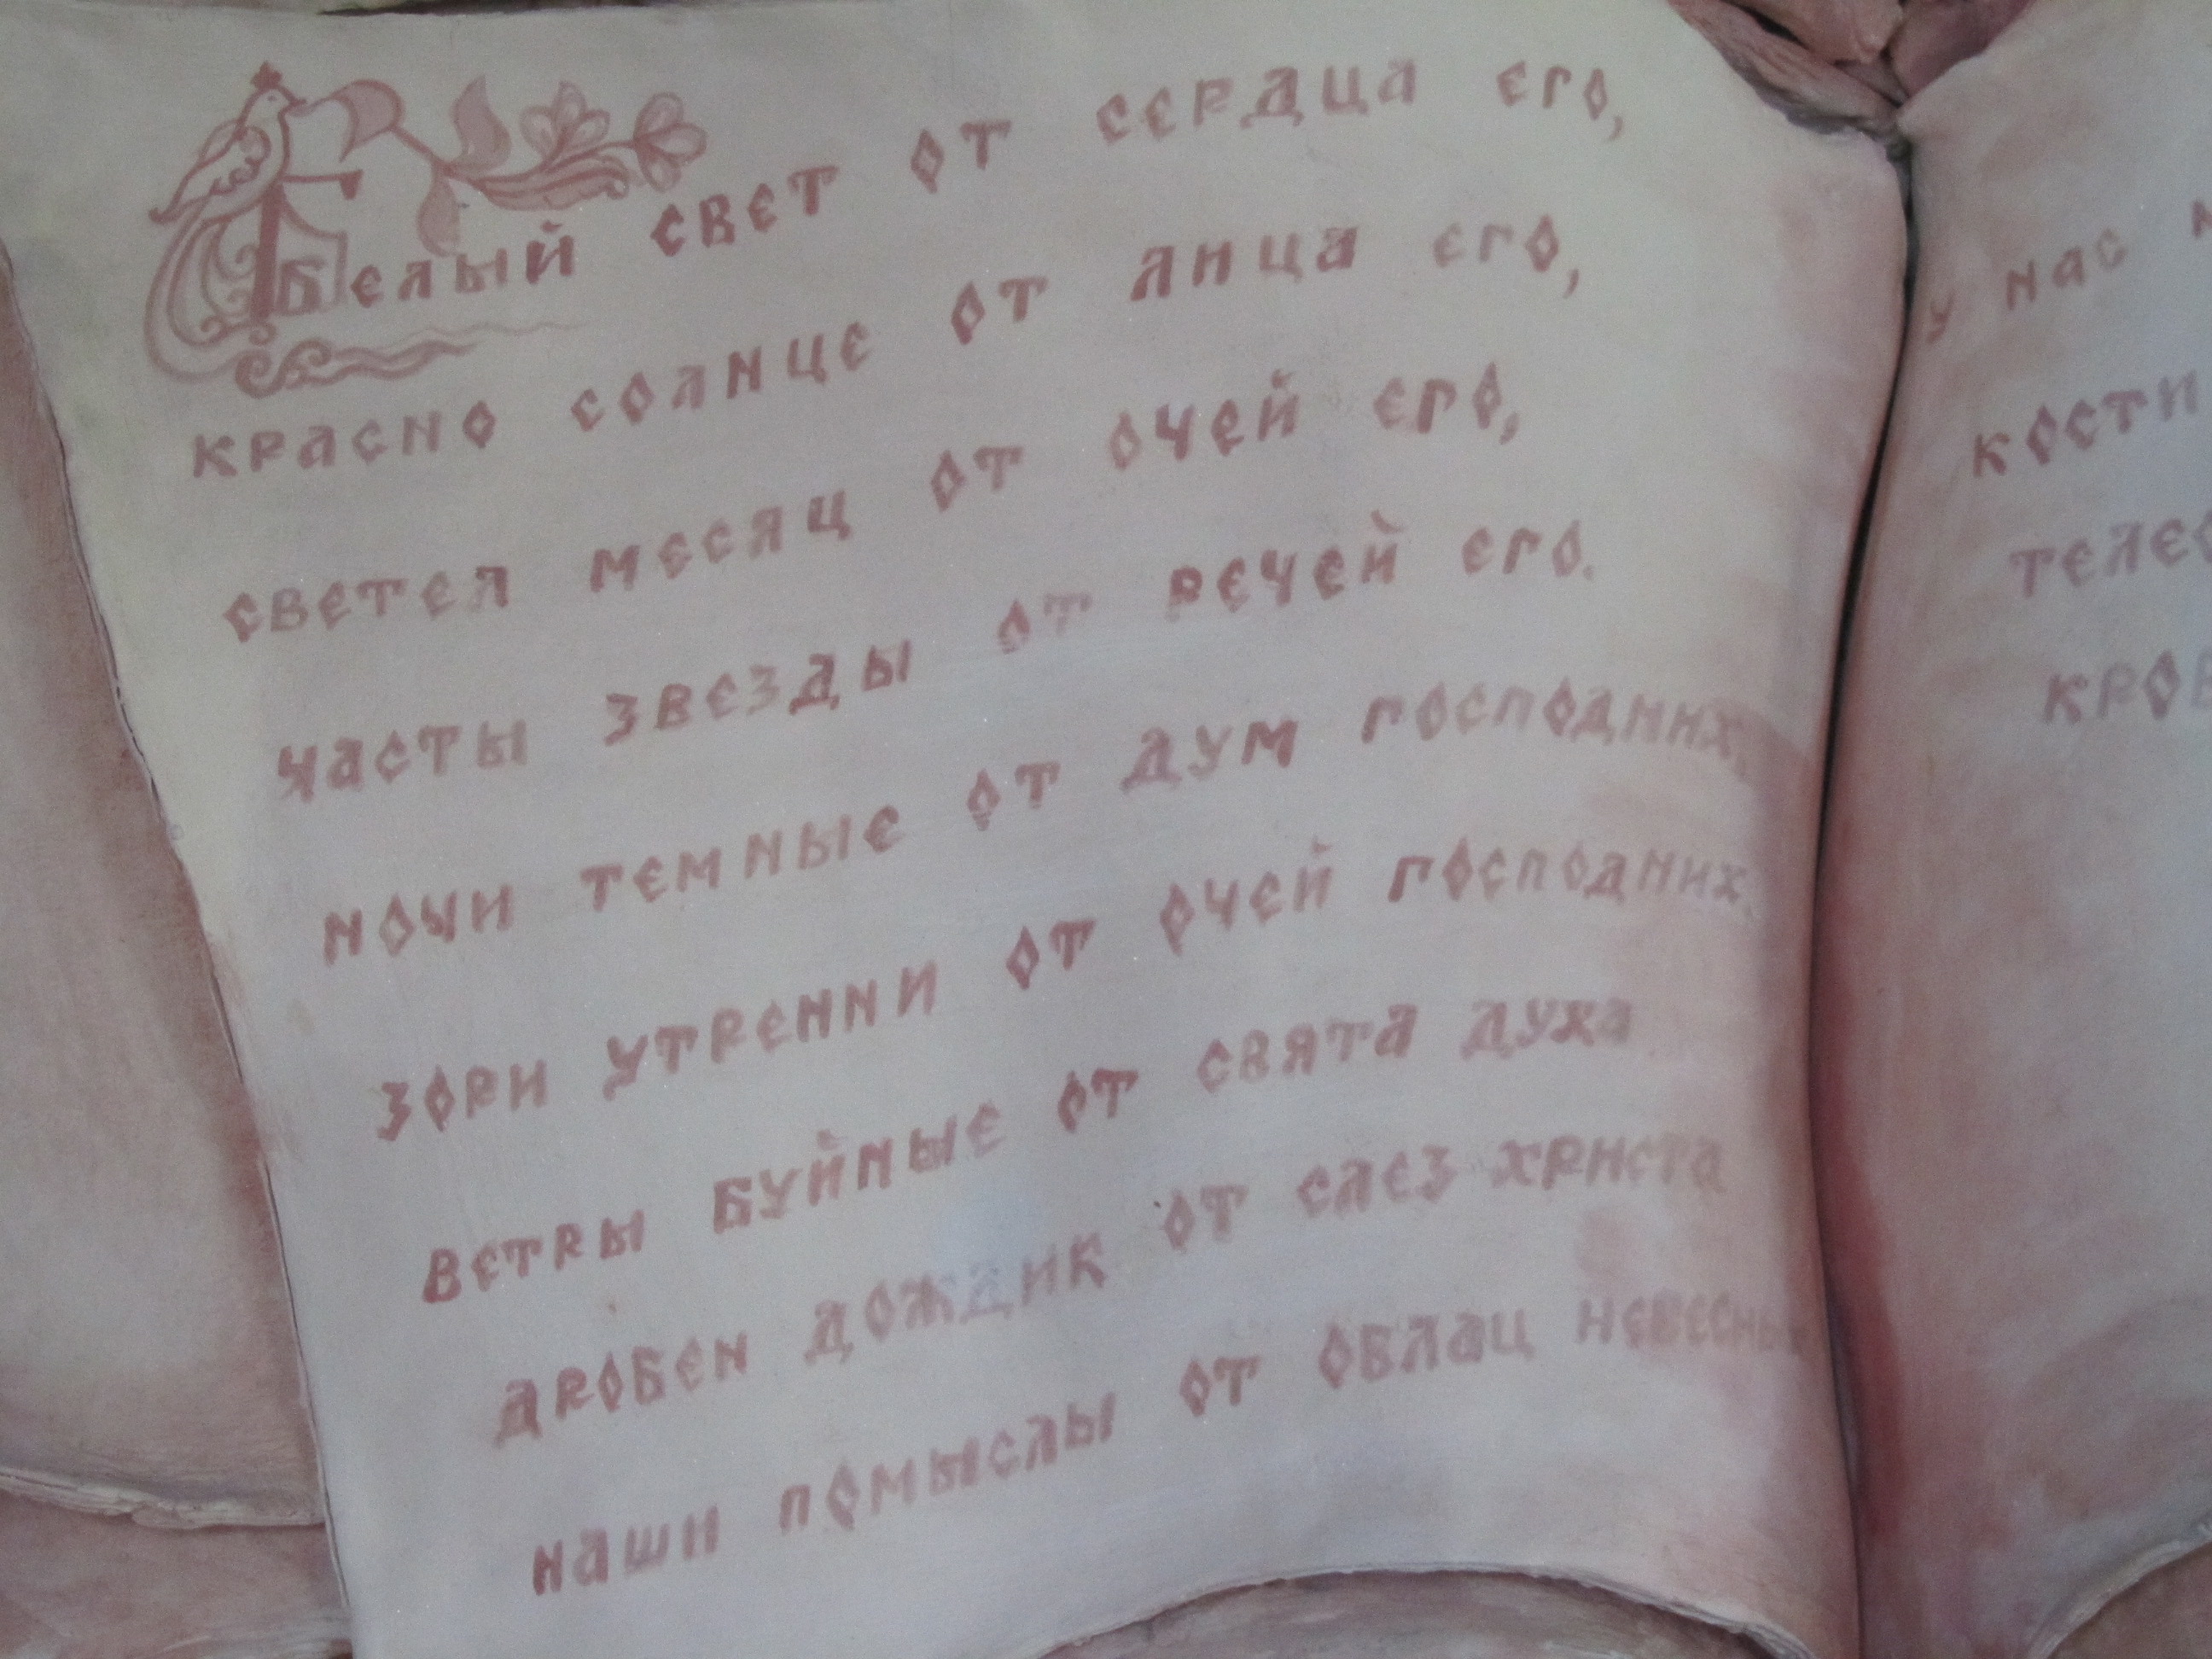 Белый свет от сердца его,
красно солнце от лица его,
светел месяц от очей его,
часты звезды от речей его.
ночи темные от дум господних,
зори утренни от очей господних,
ветры буйные от свята духа
дробен дождик от слез христа
наши помыслы от облац небесных
у нас
кости
телес
кров